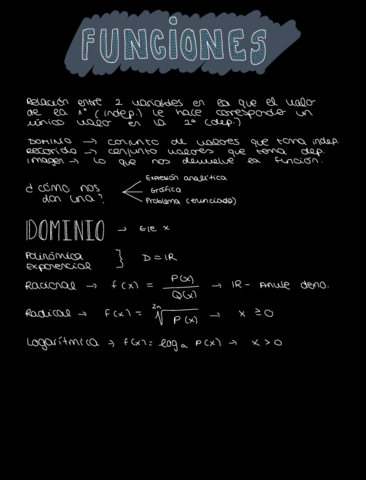 FUNCIONES
Relación entre 2 variables en la que el valor
de la 1ª (indep.) le hace corresponder un
único valor en la 2ª (dep.)
DOMINIO → conjunto de valores que toma indep.
Recorrido → conjunto valores que toma dep.
Imagen → lo que nos devuelve la función.
¿Cómo nos dan una?
Expresión analítica
Gráfica
Problema (enunciado)
DOMINIO → Eje x
Polinómica
Exponencial } D = IR
Racional → f(x) = P(x) / Q(x) → IR - Anule deno.
Radical → f(x) = ²ⁿ√P(x) → x ≥ 0
Logarítmica → f(x) = logₐ P(x) → x > 0